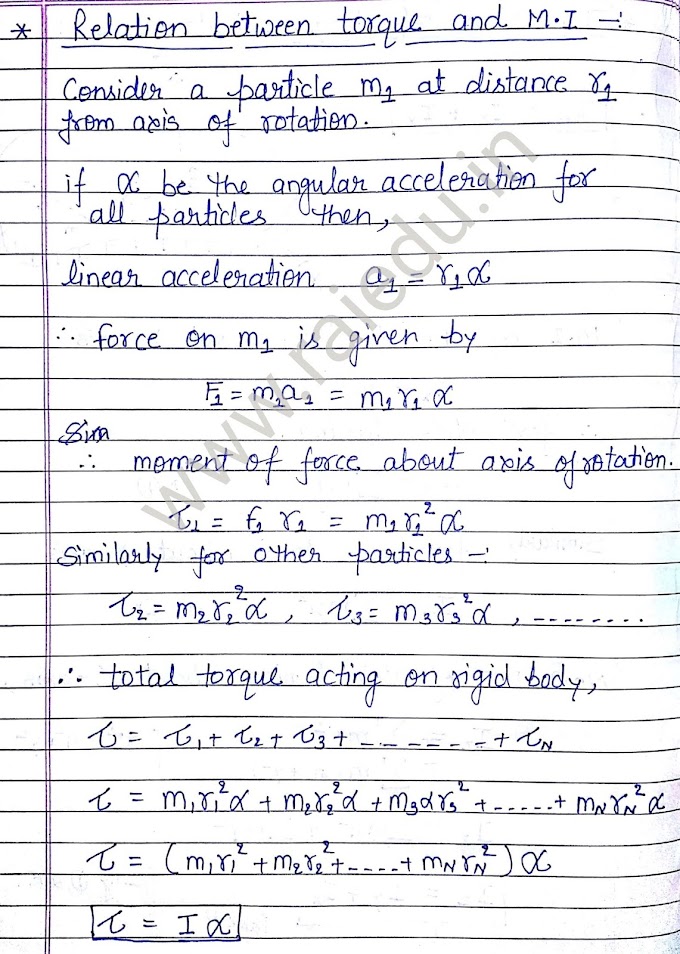 * Relation between torque and M.I -:
Consider a particle m₁ at distance r₁
from axis of rotation.
if α be the angular acceleration for
all particles then,
linear acceleration a₁ = r₁α
∴ force on m₁ is given by
F₁ = m₁a₁ = m₁r₁α
Sim
∴ moment of force about axis of rotation.
τ₁ = f₁ r₁ = m₁r₁²α
Similarly for other particles -:
τ₂ = m₂r₂²α , τ₃ = m₃r₃²α , --------
∴ total torque acting on rigid body,
τ = τ₁ + τ₂ + τ₃ + ------- + τN
τ = m₁r₁²α + m₂r₂²α + m₃αr₃² + ----- + mNrN²α
τ = (m₁r₁² + m₂r₂² + ---- + mNrN²)α
τ = Iα
www.rajedu.in